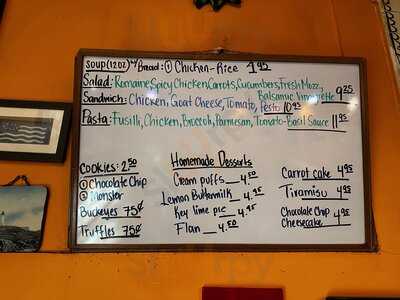 Soup (12oz) w/ Bread: ① Chicken-Rice 4.95
Salad: Romaine, Spicy Chicken, Carrots, Cucumbers, Fresh Mozz,
Balsamic Vinaigrette 9.25
Sandwich: Chicken, Goat Cheese, Tomato, Pesto 10.95
Pasta: Fusilli, Chicken, Broccoli, Parmesan, Tomato-Basil Sauce 11.95
Cookies: 2.50
① Chocolate Chip
② Monster
Buckeyes 75¢
Truffles 75¢
Homemade Desserts
Cream puffs 4.50
Lemon Buttermilk 4.95
Key lime pie 4.95
Flan 4.50
Carrot cake 4.95
Tiramisu 4.95
Chocolate Chip
Cheesecake 4.95